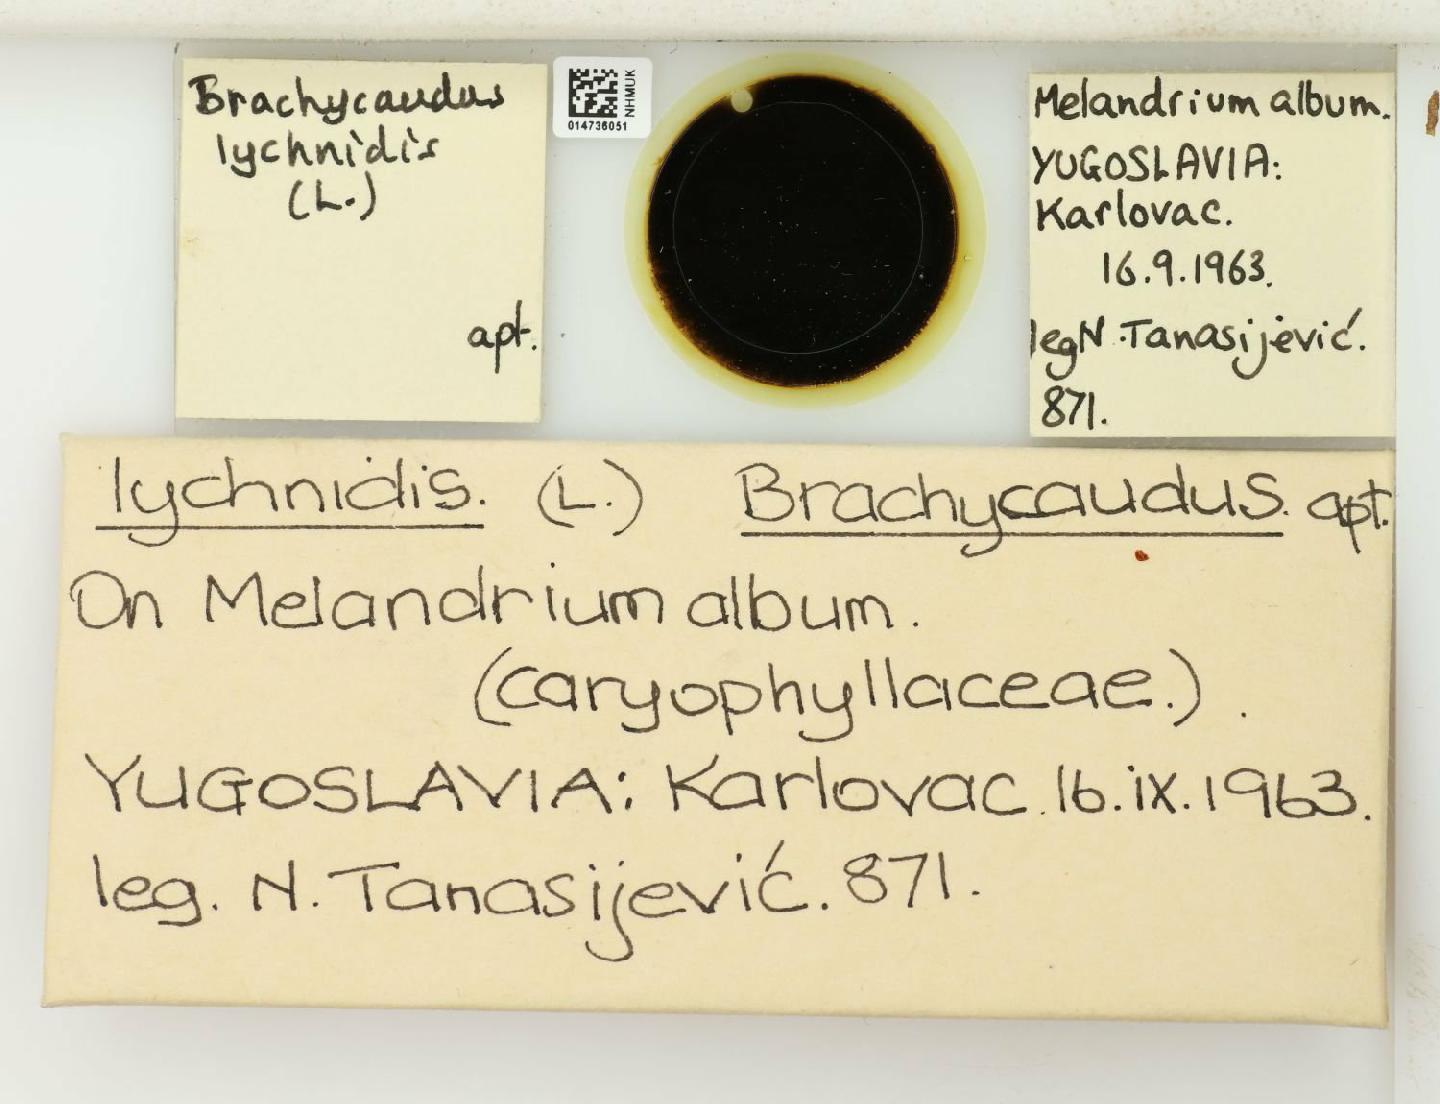 Brachycaudus
lychnidis
(L.)
apt.
NHMUK
014736051
Melandrium album.
YUGOSLAVIA:
Karlovac.
16.9.1963.
leg N. Tanasijević.
871.
lychnidis. (L.) Brachycaudus. apt.
On Melandrium album.
(caryophyllaceae.).
YUGOSLAVIA: Karlovac. 16.ix.1963.
leg. N. Tanasijević. 871.